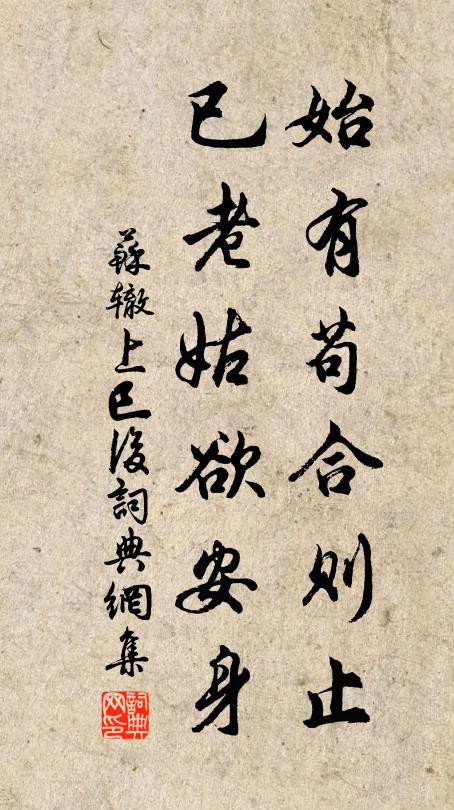 始有苟合則止
已老姑欲安身
蘇辙上巳後詞典網集
詞典
网印